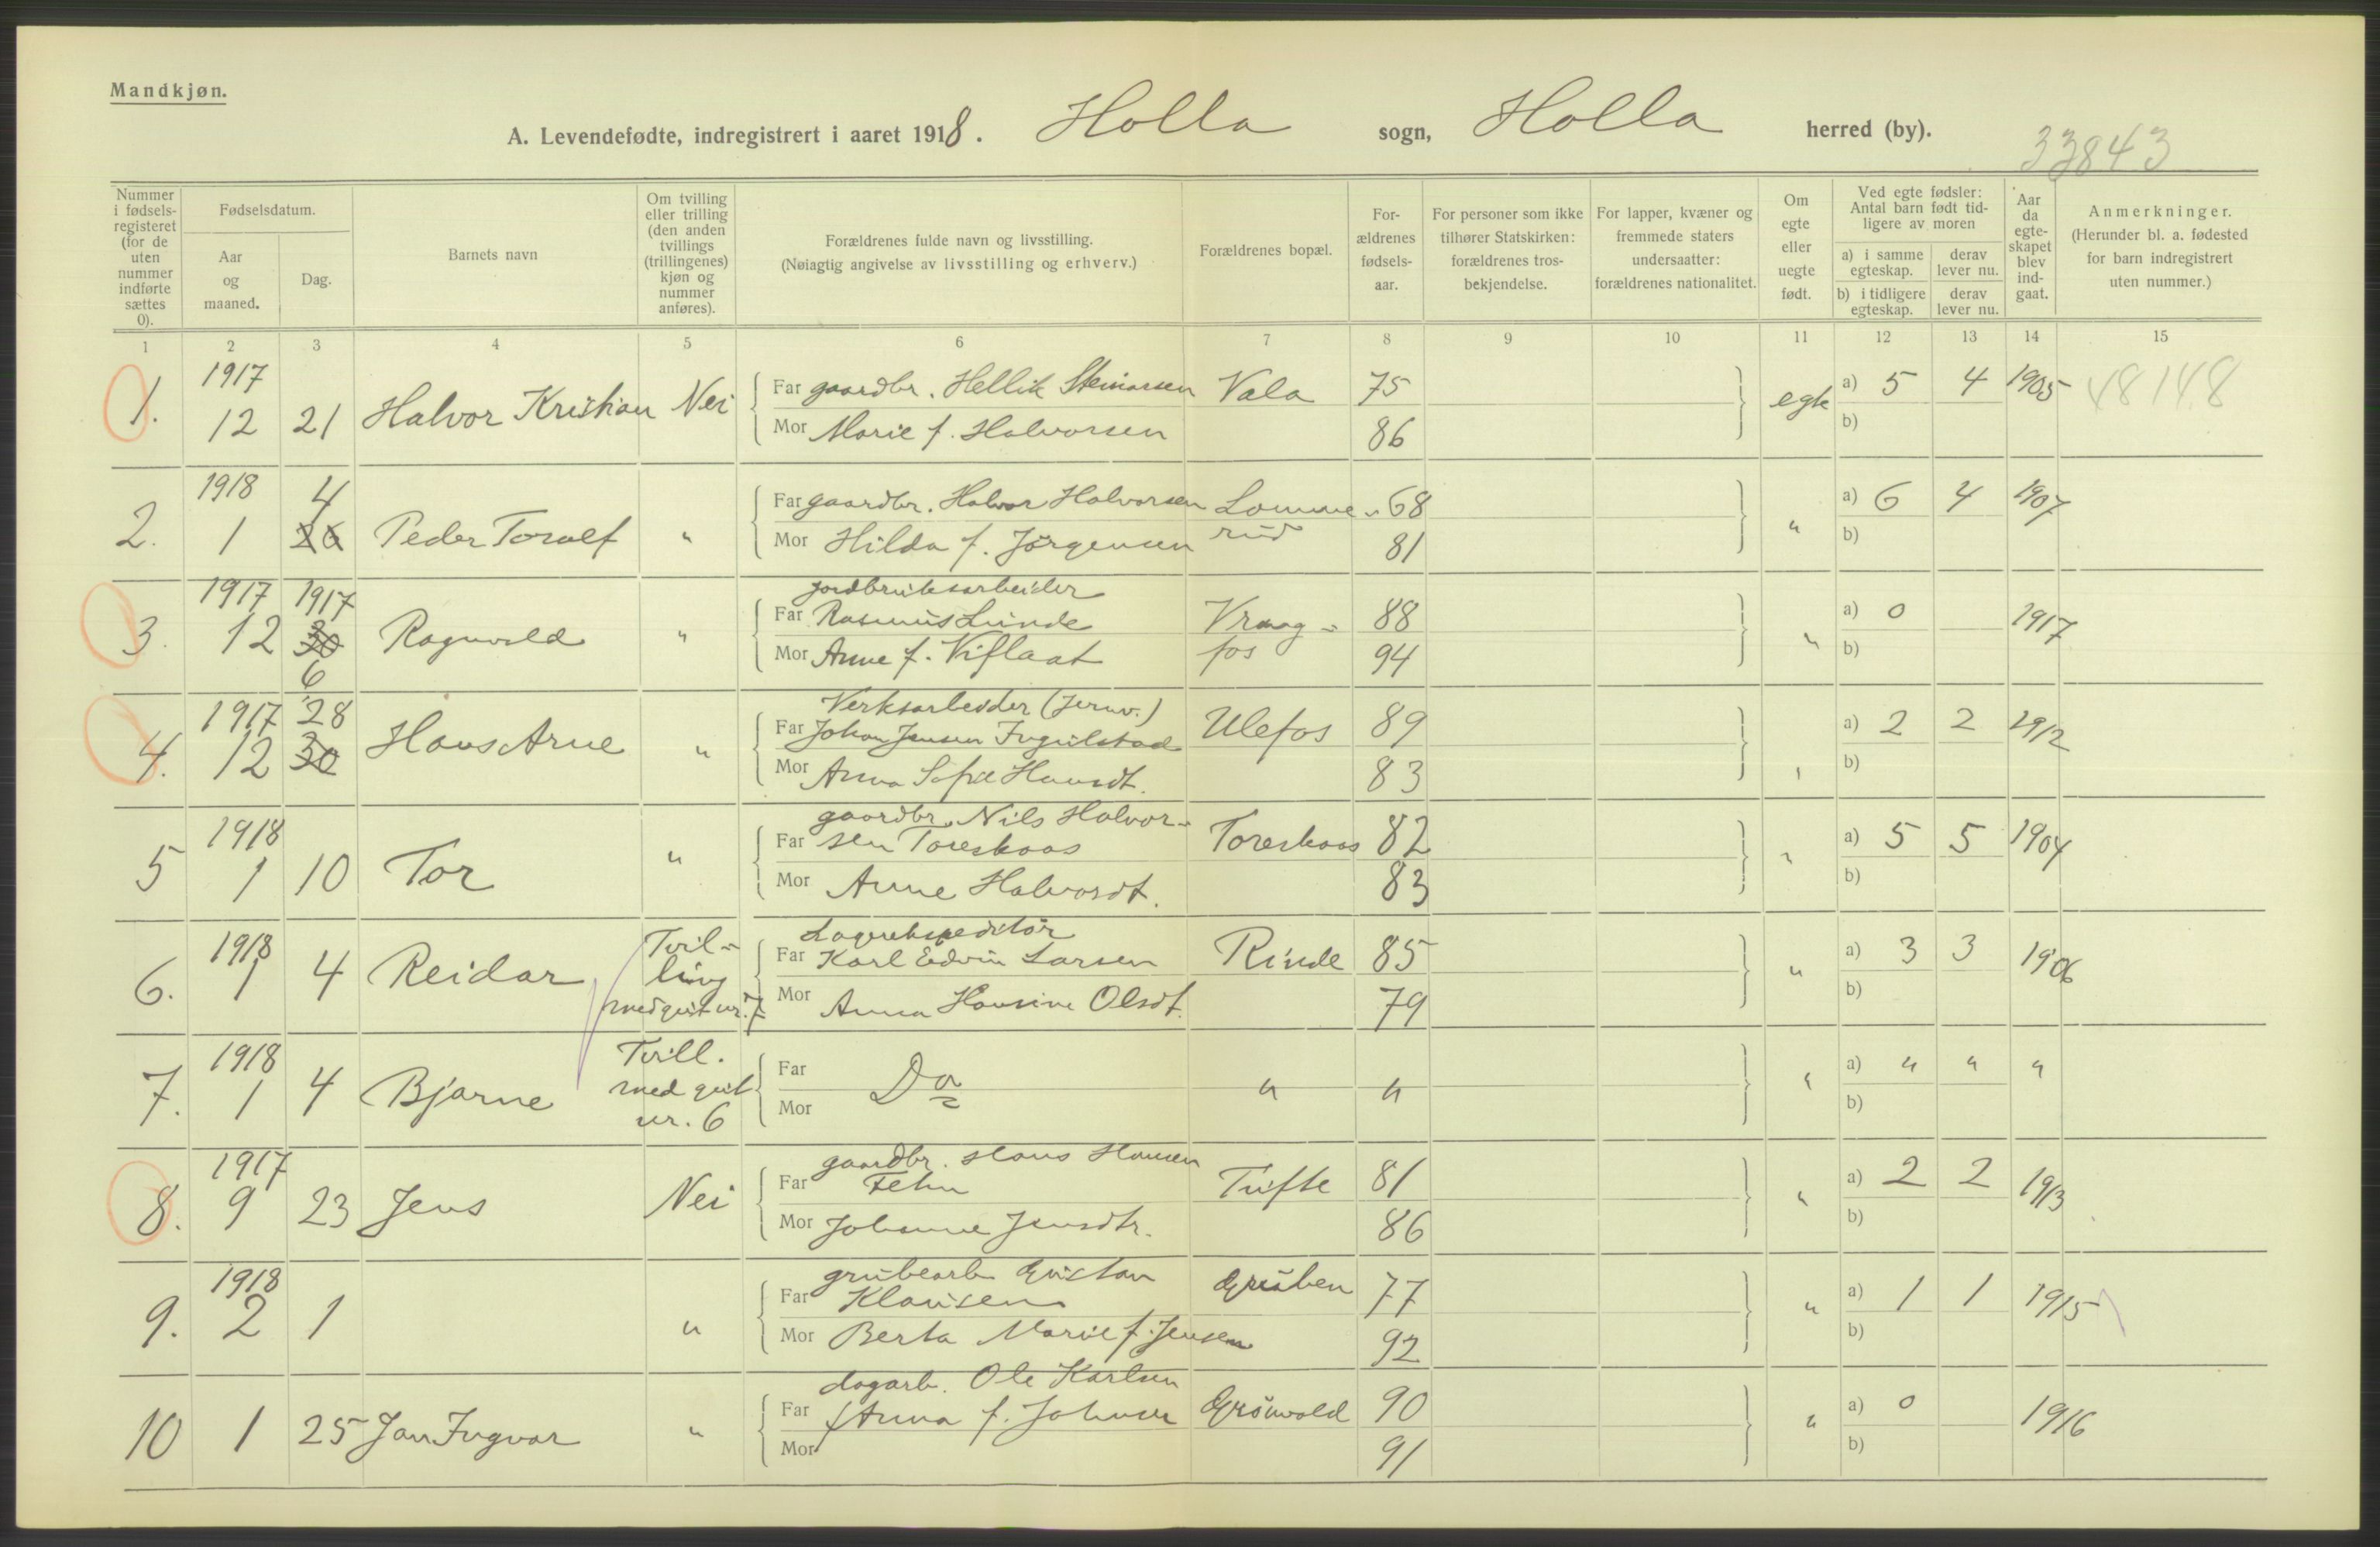 Mandkjøn.
A. Levendefødte, indregistrert i aaret 1918. Holla sogn, Holla herred (by).
33843
Nummer i fødsels-registeret (for de uten nummer indførte sættes 0).
Fødselsdatum.
Aar og maaned.
Dag.
Barnets navn
Om tvilling eller trilling (den anden tvillings (trillingenes) kjøn og nummer anføres).
Forældrenes fulde navn og livsstilling.
(Nøiagtig angivelse av livsstilling og erhverv.)
Forældrenes bopæl.
For-ældrenes fødsels-aar.
For personer som ikke tilhører Statskirken: forældrenes tros-bekjendelse.
For lapper, kvæner og fremmede staters undersaatter: forældrenes nationalitet.
Om egte eller uegte født.
Ved egte fødsler: Antal barn født tid-ligere av moren
a) i samme egteskap.
derav lever nu.
b) i tidligere egteskap.
derav lever nu.
Aar da egte-skapet blev ind-gaat.
Anmerkninger.
(Herunder bl. a. fødested for barn indregistrert uten nummer.)
1 2 3 4 5 6 7 8 9 10 11 12 13 14 15
1. 1917 12 21 Halvor Kristian Nei
Far gaardbr. Hellik Steinarsen Vala 75 egte a) 5 4 1905 48148
Mor Marie f. Halvorsen 86 b)
2. 1918 1 4 26 Peder Torolf "
Far gaardbr. Halvor Halvorsen Lomme- 68 " a) 6 4 1907
Mor Hilda f. Jørgensen rud 81 b)
3. 1917 12 1917 30 6 Ragnvald "
jordbruksarbeider
Far Rasmus Lunde Vraag- 88 " a) 0 1917
Mor Anne f. Viflaat fos 94 b)
4. 1917 12 28 30 Hans Arne "
Verksarbeider (Jernv.)
Far Johan Jensen Ingulstad Ulefos 89 " a) 2 2 1912
Mor Anna Sofie Hansdt. 83 b)
5 1918 1 10 Tor "
gaardbr. Nils Halvor-
Far sen Toreskaas Toreskaas 82 " a) 5 5 1904
Mor Anne Halvorsdt. 83 b)
6. 1918 1 4 Reidar Tvil-ling med gut nr. 7
Lagerekspeditør
Far Karl Edvin Larsen Rinde 85 " a) 3 3 1906
Mor Anna Hansine Olsdt. 79 b)
7. 1918 1 4 Bjarne Tvill. med gut nr. 6
Far Do " " " a) " " "
Mor b)
8. 1917 9 23 Jens Nei
gaardbr. Hans Hansen
Far Fehn Tufte 81 " a) 2 2 1913
Mor Johanne Jensdtr. 86 b)
9. 1918 2 1 "
grubearb. Gustav
Far Klausen Gruben 77 " a) 1 1 1915
Mor Berta Marie f. Jensen 92 b)
10 1 25 Jan Ingvar "
dagarb. Ole Karlsen
Far Anna f. Johnsen Grönvold 90 " a) 0 1916
Mor 91 b)